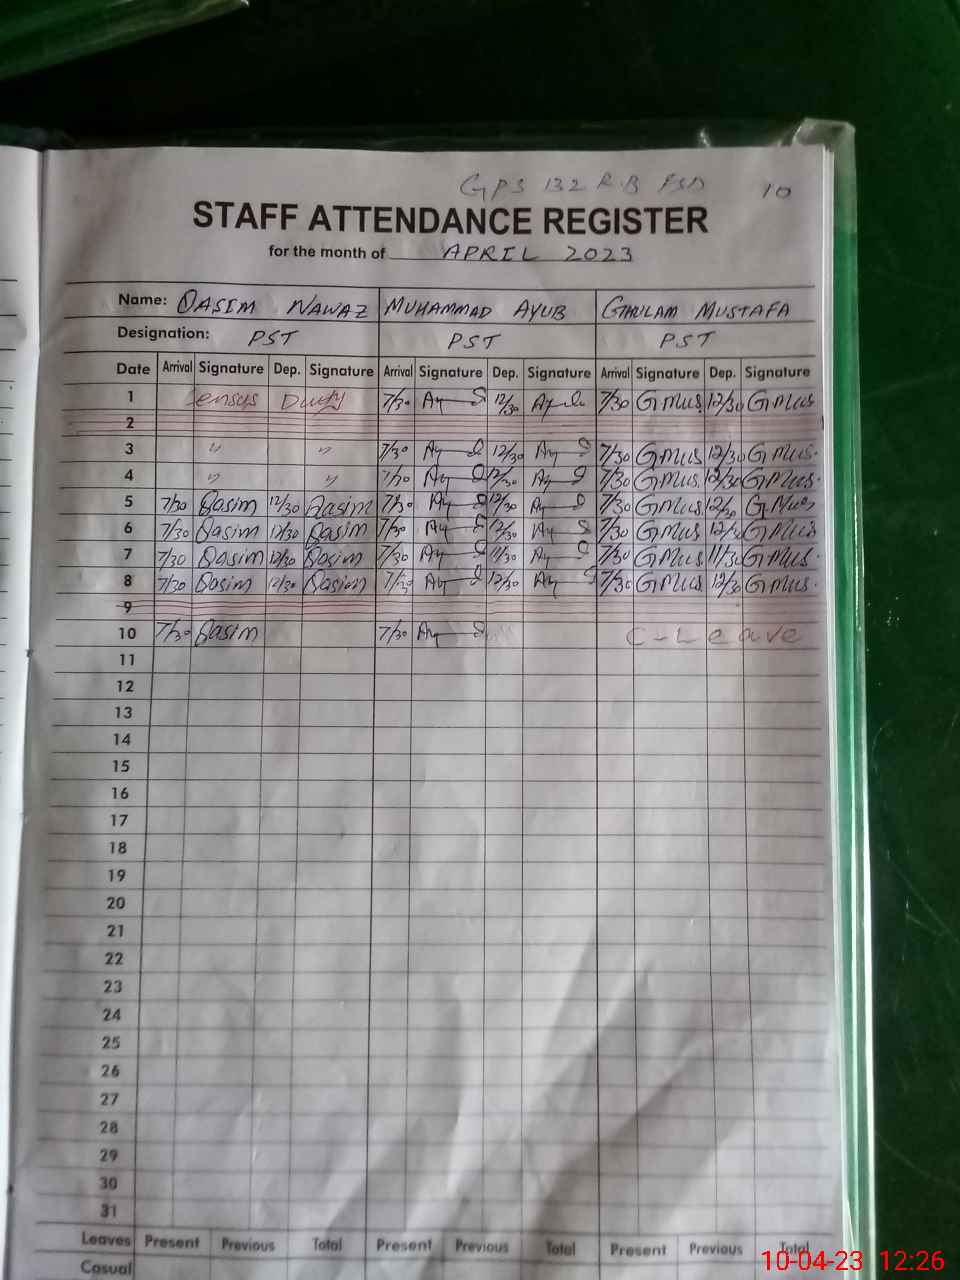 GPS 132 R.B FSD 10
STAFF ATTENDANCE REGISTER
for the month of APRIL 2023
Name: QASIM NAWAZ MUHAMMAD AYUB GHULAM MUSTAFA
Designation: PST PST PST
Date Arrival Signature Dep. Signature Arrival Signature Dep. Signature Arrival Signature Dep. Signature
1 Sensus Duty 7/30 Ay 12/30 Ay 7/30 GMus 12/30 GMus
2
3 " " 7/30 Ay 12/30 Ay 7/30 GMus 12/30 GMus.
4 " " 7/30 Ay 12/30 Ay 7/30 GMus. 12/30 GMus.
5 7/30 Qasim 12/30 Qasim 7/30 Ay 12/30 Ay 7/30 GMus 12/30 G.Mus
6 7/30 Qasim 12/30 Qasim 7/30 Ay 12/30 Ay 7/30 GMus 12/30 GMus
7 7/30 Qasim 12/30 Qasim 7/30 Ay 11/30 Ay 7/30 GMus 11/30 GMus.
8 7/30 Qasim 12/30 Qasim 7/30 Ay 12/30 Ay 7/30 GMus 12/30 GMus.
9
10 7/30 Qasim 7/30 Ay C-Leave
11
12
13
14
15
16
17
18
19
20
21
22
23
24
25
26
27
28
29
30
31
Leaves Present Previous Total Present Previous Total Present Previous Total
Casual
10-04-23 12:26